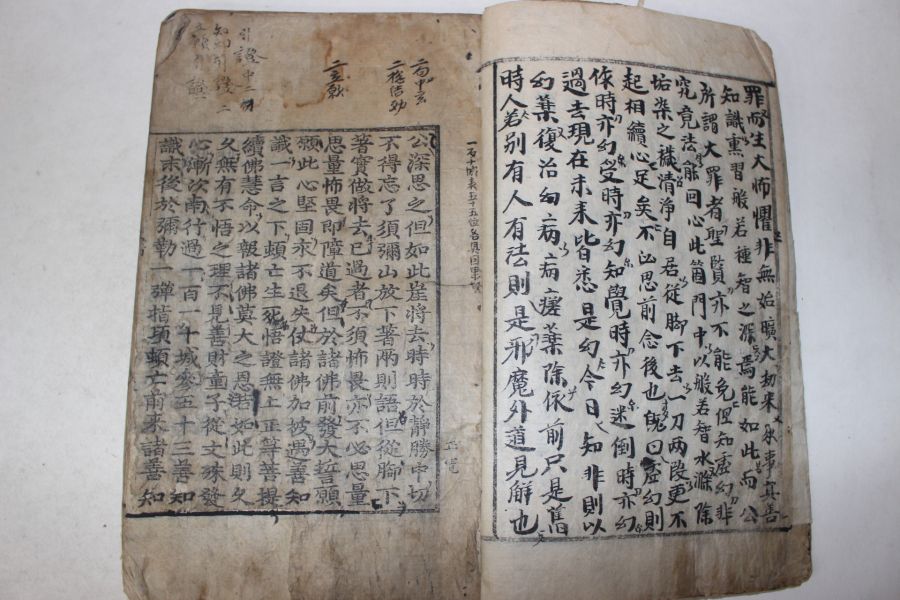 罪而生大怖懼非無始曠大劫來承事真善
知識熏習般若種智之深焉能如此而公
所謂大罪者聖賢亦不能免但知虛幻非
究竟法能回心此箇門中以般若智水滌除
垢染之穢清淨自居從脚下去一刀两段更不
起相續心足矣不必思前念後也旣曰虛幻則
作時亦幻受時亦幻知覺時亦幻迷倒時亦幻
過去現在未来皆悉是幻今日知非則以
幻藥復治幻病病瘥藥除依前只是舊
時人若別有人有法則是邪魔外道見解也
公深思之但如此崖將去時時於靜勝中切
不得忘了須彌山放下著兩則語但從脚下
著實做將去已過者不須怖畏亦不必思量
思量怖畏即障道矣但於諸佛前發大誓願
願此心堅固永不退失仗諸佛加被遇善知
識一言之下頓亡生死悟證無上正等菩提
續佛慧命以報諸佛莫大之恩若如此則久
久無有不悟之理不見善財童子從文殊發
心漸次南行過一百一十城參五十三善知
識末後於彌勒一彈指頃頓亡前來諸善知